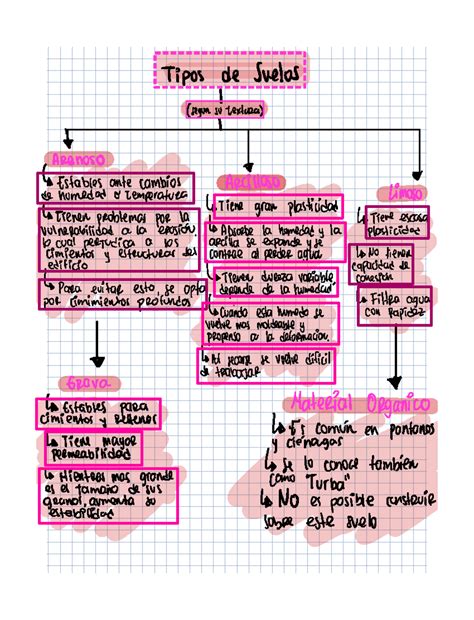 Tipos de Suelos
(segun su textura)
Arenoso
↳ Estables ante cambios
de humedad o temperatura
↳ Tienen problemas por la
vulnerabilidad a la erosión
lo cual perjudica a los
cimientos y estructuras del
edificio
↳ Para evitar esto, se opta
por cimientos profundos
Arcilloso
↳ Tiene gran plasticidad
↳ Absorbe la humedad y la
arcilla se expande y se
contrae al perder agua
↳ Tienen dureza variable
depende de la humedad
↳ Cuando esta humedo se
vuelve mas moldeable y
propenso a la deformacion
↳ Al secarse se vuelve dificil
de trabajar
Limoso
↳ Tiene escasa
plasticidad
↳ No tienen
capacidad de
cohesión
↳ Filtra agua
con rapidez
Grava
↳ Estables para
cimientos y rellenos
↳ Tiene mayor
permeabilidad
↳ Mientras mas grande
es el tamaño de sus
granos, aumenta su
estabilidad
Material Organico
↳ Es común en pantanos
y cienagas
↳ Se lo conoce también
como "Turba"
↳ NO es posible construir
sobre este suelo